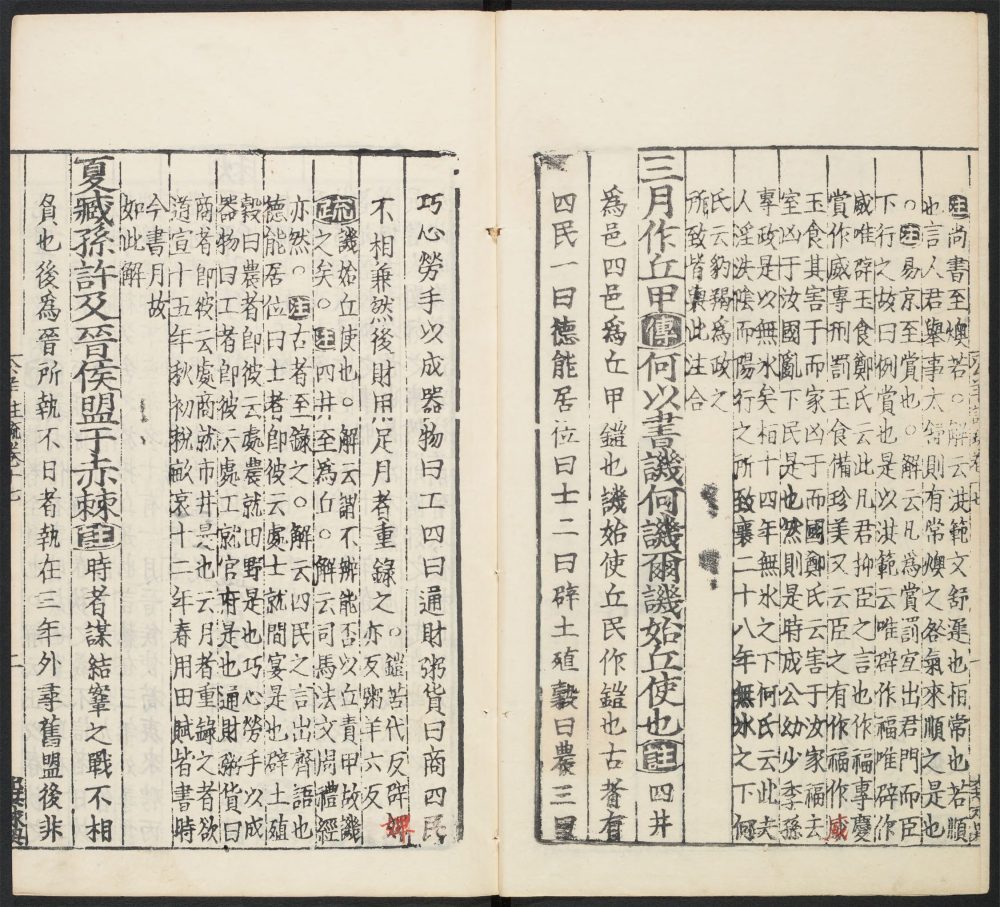 注尚書至燠若○解云洪範文舒遲也恒常也若順
也言人君舉事太舒則有常燠之咎氣來順之是也
○注易京至賞也○解云凡為賞罰宜出君門而臣
下行之故曰倒賞也是以洪範云唯辟作福唯辟作
威唯辟玉食鄭氏云此凡君抑臣之言也作福專慶
賞作威專刑罰玉食備珍美又云臣之有作福作威
玉食其害于而家凶于而國鄭氏云害于汝家福去
室凶于汝國亂下民是也然則是時成公幼少季孫
專政是以無冰矣栢十四年無冰之下何氏云此夫
人淫泆陰而陽行之所致襄二十八年無冰之下何
氏云豹羯為政之
所致皆與此注合
三月作丘甲傳何以書譏何譏爾譏始丘使也註四井
為邑四邑為丘甲鎧也譏始使丘民作鎧也古者有
四民一曰德能居位曰士二曰辟土殖穀曰農三曰
巧心勞手以成器物曰工四曰通財粥貨曰商四民
不相兼然後財用足月者重錄之○鎧苦代反辟婢
亦反粥羊六反
疏譏始丘使也○解云謂不辨能否以丘責甲故譏
之矣○注四井至為丘○解云司馬法文周禮經
亦然○注古者至錄之○解云四民之言出齊語也
德能居位曰士者即彼云處士就閒宴是也辟土殖
穀曰農者即彼云處農就田野是也巧心勞手以成
器物曰工者即彼云處工就官府是也通財粥貨曰
商者即彼云處商就市井是也云月者重錄之者欲
道宣十五年秋初稅畝哀十二年春用田賦皆書時
今書月故
如此解
夏臧孫許及晉侯盟于赤棘註時者謀結鞌之戰不相
負也後為晉所執不日者執在三年外尋舊盟後非